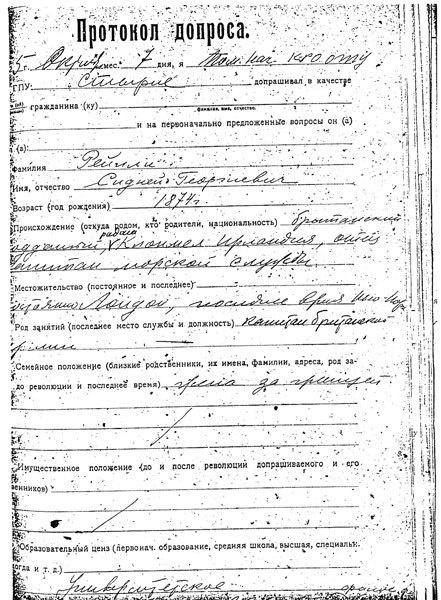 Протокол допроса.
5 г. Октяб. мес. 7 дня, я Пом. нач. КРО ОГПУ
ГПУ Стырне допрашивал в качестве
гражданина (ку)
фамилия, имя, отчество.
и на первоначально предложенные вопросы он (а)
(а):
фамилия Рейлли
Имя, отчество Сидней Георгиевич
Возраст (год рождения) 1874 г.
Происхождение (откуда родом, кто родители, национальность) британский
подданный, Клонмел Ирландия, отец
капитан морской службы
Местожительство (постоянное и последнее)
Лондон, последнее время Нью Йорк
Род занятий (последнее место службы и должность) капитан британской
армии
Семейное положение (близкие родственники, их имена, фамилии, адреса, род за-
до революции и последнее время) жена за границей
Имущественное положение (до и после революции допрашиваемого и его
венников)
Образовательный ценз (первонач. образование, средняя школа, высшая, специальн.
когда и т. д.)
Университетское